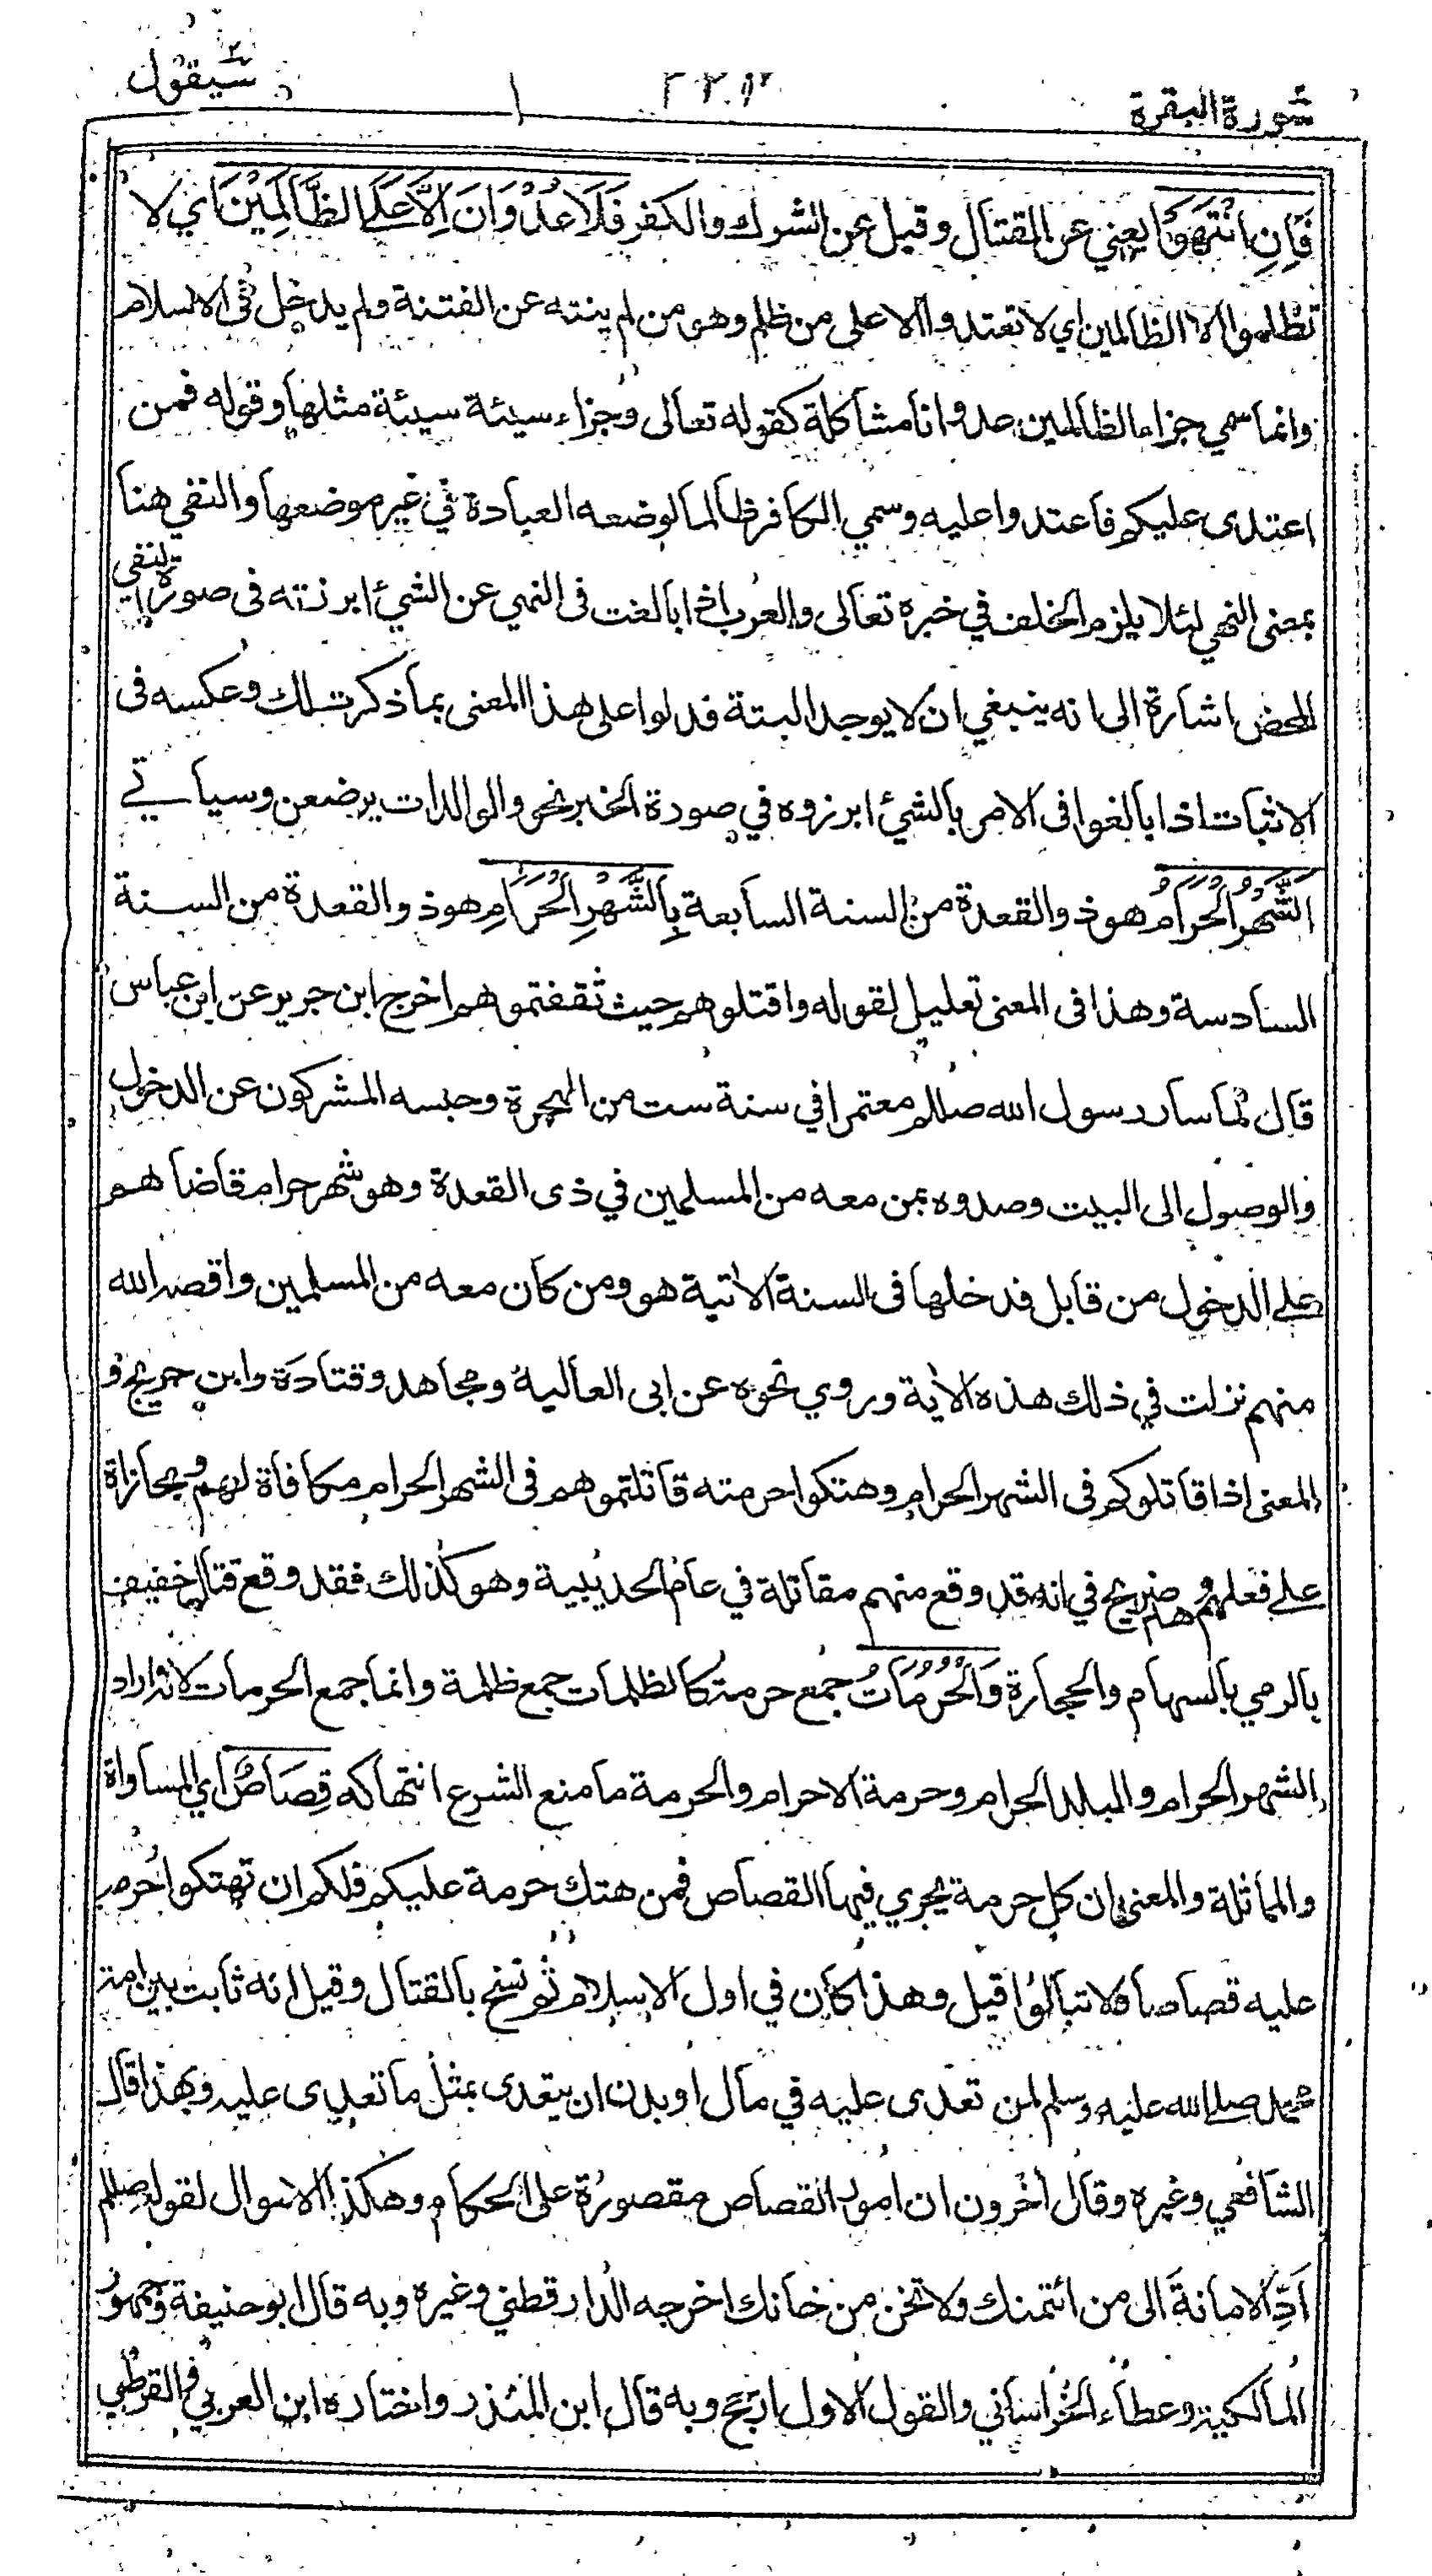 سيقول
سورة البقرة
فَإِنِ انْتَهَوْا يعني عن المقتال وقيل عن الشرك والكفر فَلَا عُدْوَانَ إِلَّا عَلَى الظَّالِمِيْنَ اي لا
تظلموا الا الظالمين اي لا تعتدوا الا على من ظلم وهو من لم ينته عن الفتنة ولم يدخل في الاسلام
وانما سمي جزاء الظالمين عدوانا مشاكلة كقوله تعالى وجزاء سيئة سيئة مثلها وقوله فمن
اعتدى عليكم فاعتدوا عليه وسمي الكافر ظالما لوضعه العبادة في غير موضعها والنفي هنا
بمعنى النهي لئلا يلزم الخلف في خبره تعالى والعرب اذا بالغت في النهي عن الشيئ ابرزته في صورة النفي
المحض اشارة الى انه ينبغي ان لا يوجد البتة فدلوا على هذا المعنى بما ذكرت لك وعكسه في
الاثبات اذا بالغوا في الامر بالشيئ ابرزوه في صورة الخبر نحو والوالدات يرضعن وسياتي
الشَّهْرُ الْحَرَامُ هو ذو القعدة من السنة السابعة بِالشَّهْرِ الْحَرَامِ هو ذو القعدة من السنة
السادسة وهذا في المعنى تعليل لقوله واقتلوهم حيث ثقفتموهم اخرج ابن جرير عن ابن عباس
قال لما سار رسول الله صللم معتمرا في سنة ست من الهجرة وحبسه المشركون عن الدخول
والوصول الى البيت وصدوه بمن معه من المسلمين في ذى القعدة وهو شهر حرام قاضاهم
على الدخول من قابل فدخلها في السنة الاتية هو ومن كان معه من المسلمين واقصه الله
منهم نزلت في ذلك هذه الاية وروي نحوه عن ابى العالية ومجاهد وقتادة وابن جريج و
المعنى اذا قاتلوكم في الشهر الحرام وهتكوا حرمته قاتلتموهم في الشهر الحرام مكافاة لهم ومجازاة
على فعلهم وهذا صريح في انه قد وقع منهم مقاتلة في عام الحديبية وهو كذلك فقد وقع قتال خفيف
بالرمي بالسهام والحجارة وَالْحُرُمَاتُ جمع حرمة كالظلمات جمع ظلمة وانما جمع الحرمات لانه اراد
الشهر الحرام والبلد الحرام وحرمة الاحرام والحرمة ما منع الشرع انتهاكه قِصَاصٌ اي المساواة
والماثلة والمعنى ان كل حرمة يجري فيها القصاص فمن هتك حرمة عليكم فلكم ان تهتكوا حرمة
عليه قصاصا فلا تبالوا قيل وهذا كان في اول الاسلام ثم نسخ بالقتال وقيل انه ثابت بين امة
محمد صلى الله عليه وسلم لمن تعدى عليه في مال او بدن ان يتعدى بمثل ما تعدى عليه وبهذا قال
الشافعي وغيره وقال اخرون ان امور القصاص مقصورة على الحكام وهكذا الاموال لقوله صللم
اَدِّ الامانةَ الى من ائتمنك ولا تخن من خانك اخرجه الدارقطني وغيره وبه قال ابو حنيفة وجمهور
المالكية وعطاء الخراساني والقول الاول ارجح وبه قال ابن المنذر واختاره ابن العربي والقرطبي